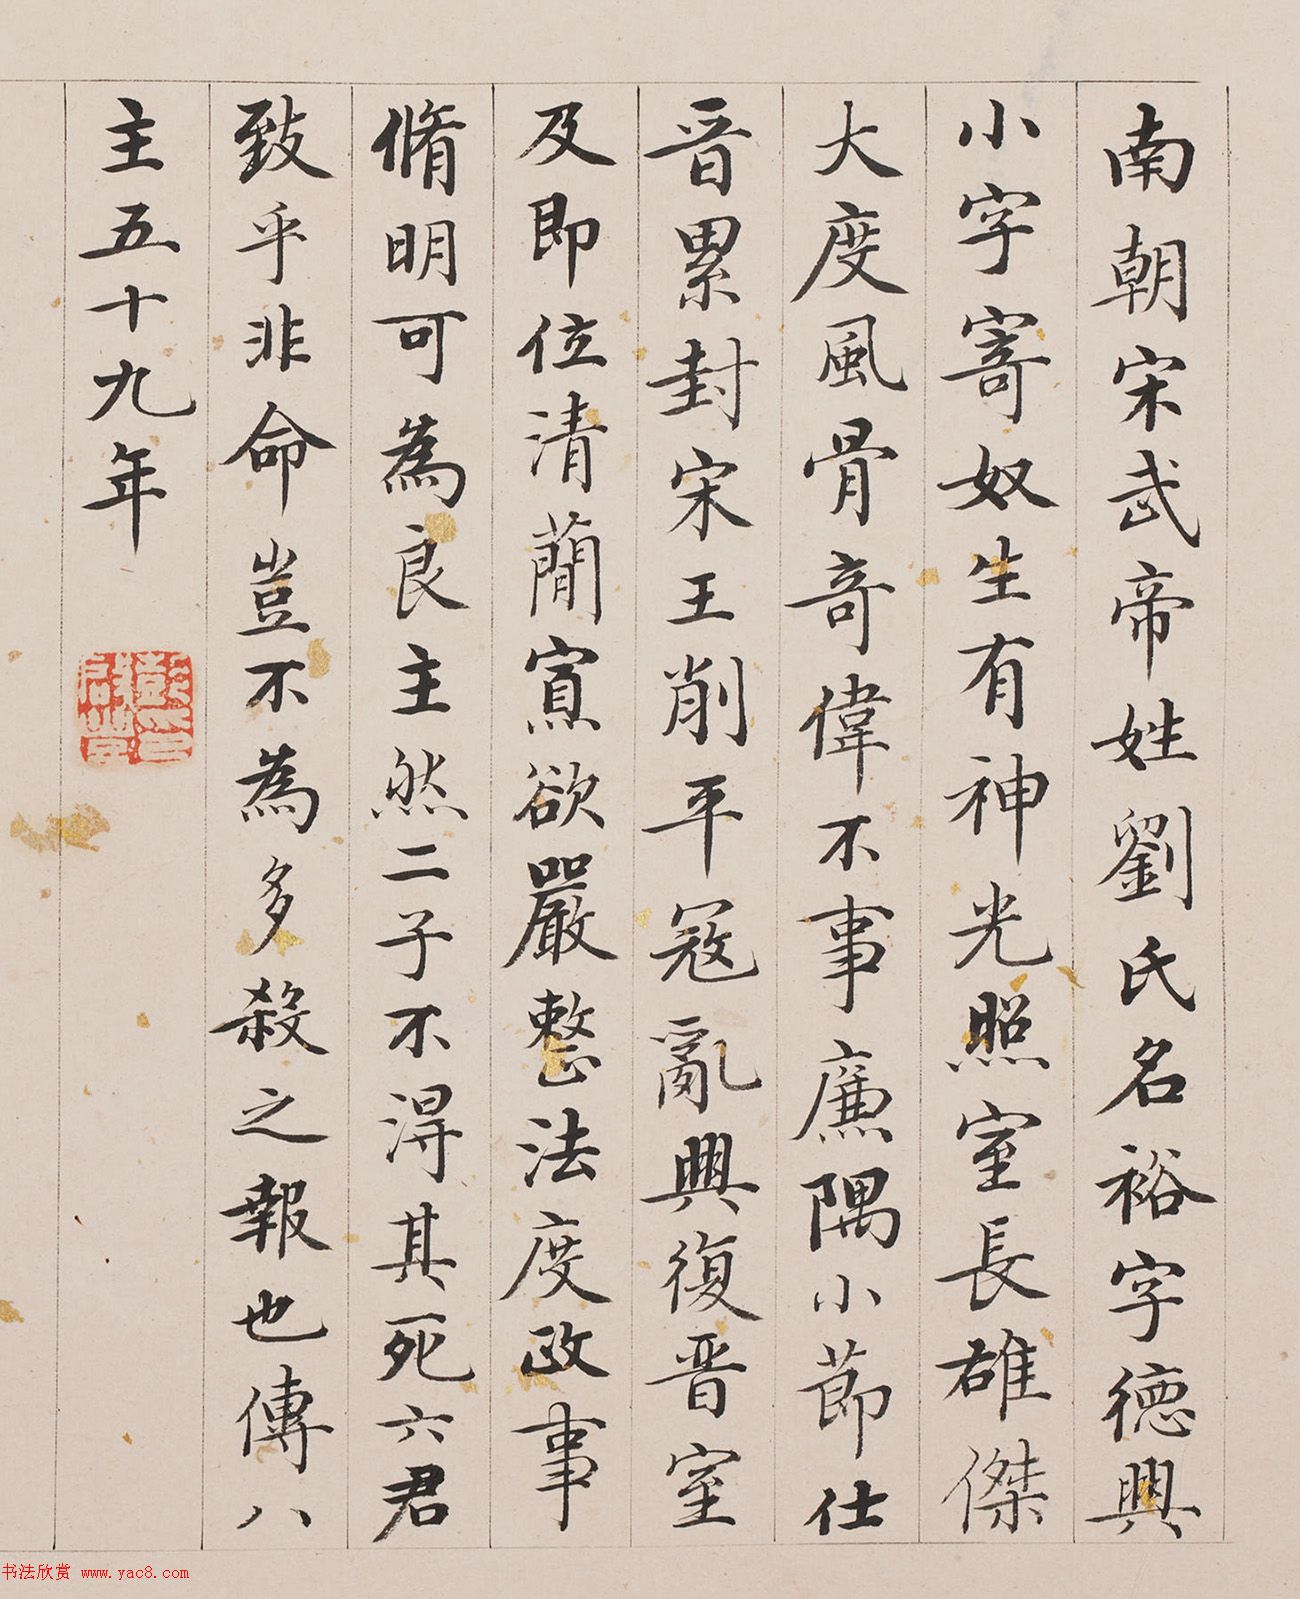 南朝宋武帝姓劉氏名裕字德興
小字寄奴生有神光照室長雄傑
大度風骨奇偉不事廉隅小莭仕
晉累封宋王削平寇亂興復晉室
及即位清蕳寡欲嚴整法度政事
脩明可為良主然二子不得其死六君
致乎非命豈不為多殺之報也傳八
主五十九年
书法欣赏 www.yac8.com